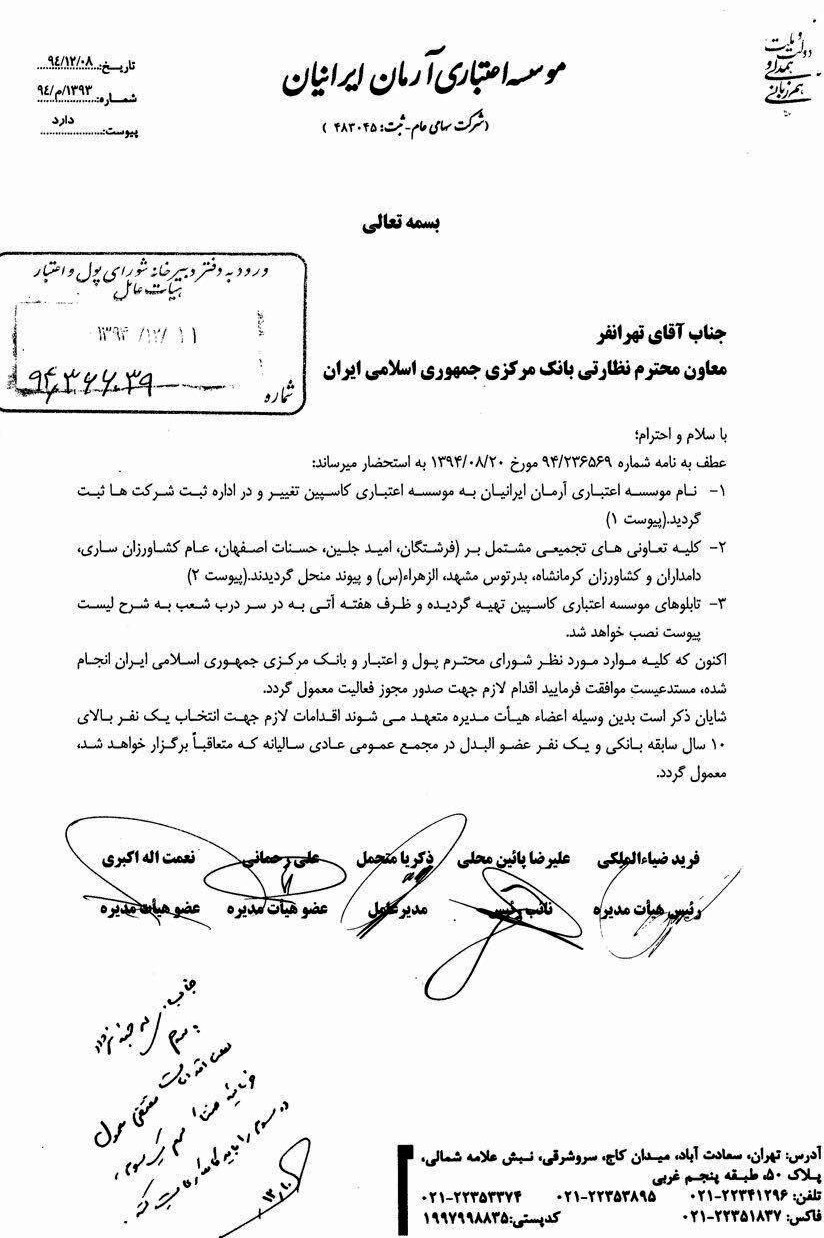 دولت و ملت
همدلی و
همزبانی
موسسه اعتباری آرمان ایرانیان
(شرکت سهامی عام-ثبت: ۴۸۳۰۴۵ )
تاریخ: ۹٤/۱۲/۰۸
شماره: ۹٤/م/۱۳۹۳
پیوست: دارد
بسمه تعالی
ورود به دفتر دبیرخانه شورای پول و اعتبار
هیات عامل
۱۳۹۴ /۱۲/ ۱۱
شماره
جناب آقای تهرانفر
معاون محترم نظارتی بانک مرکزی جمهوری اسلامی ایران
با سلام و احترام؛
عطف به نامه شماره ۹۴/۲۳۶۵۶۹ مورخ ۱۳۹۴/۰۸/۲۰ به استحضار میرساند:
۱- نام موسسه اعتباری آرمان ایرانیان به موسسه اعتباری کاسپین تغییر و در اداره ثبت شرکت ها ثبت
گردید.(پیوست ۱)
۲- کلیه تعاونی های تجمیعی مشتمل بر (فرشتگان، امید جلین، حسنات اصفهان، عام کشاورزان ساری،
دامداران و کشاورزان کرمانشاه، بدرتوس مشهد، الزهراء(س) و پیوند منحل گردیدند.(پیوست ۲)
۳- تابلوهای موسسه اعتباری کاسپین تهیه گردیده و ظرف هفته آتی به در سر درب شعب به شرح لیست
پیوست نصب خواهد شد.
اکنون که کلیه موارد مورد نظر شورای محترم پول و اعتبار و بانک مرکزی جمهوری اسلامی ایران انجام
شده، مستدعیست موافقت فرمایید اقدام لازم جهت صدور مجوز فعالیت معمول گردد.
شایان ذکر است بدین وسیله اعضاء هیأت مدیره متعهد می شوند اقدامات لازم جهت انتخاب یک نفر بالای
۱۰ سال سابقه بانکی و یک نفر عضو البدل در مجمع عمومی عادی سالیانه که متعاقباً برگزار خواهد شد،
معمول گردد.
فرید ضیاءالملکی علیرضا پائین محلی ذکریا متحمل علی رحمانی نعمت اله اکبری
رئیس هیأت مدیره نائب رئیس مدیرعامل عضو هیأت مدیره عضو هیأت مدیره
جناب
آدرس: تهران، سعادت آباد، میدان کاج، سروشرقی، نبش علامه شمالی،
پلاک ۵۰، طبقه پنجم غربی
تلفن: ۲۲۳۴۱۲۹۶-۰۲۱ ۲۲۳۵۳۸۹۵-۰۲۱ ۲۲۳۵۳۳۷۴-۰۲۱
فاکس: ۲۲۳۵۱۸۳۷-۰۲۱ کدپستی:۱۹۹۷۹۹۸۸۳۵